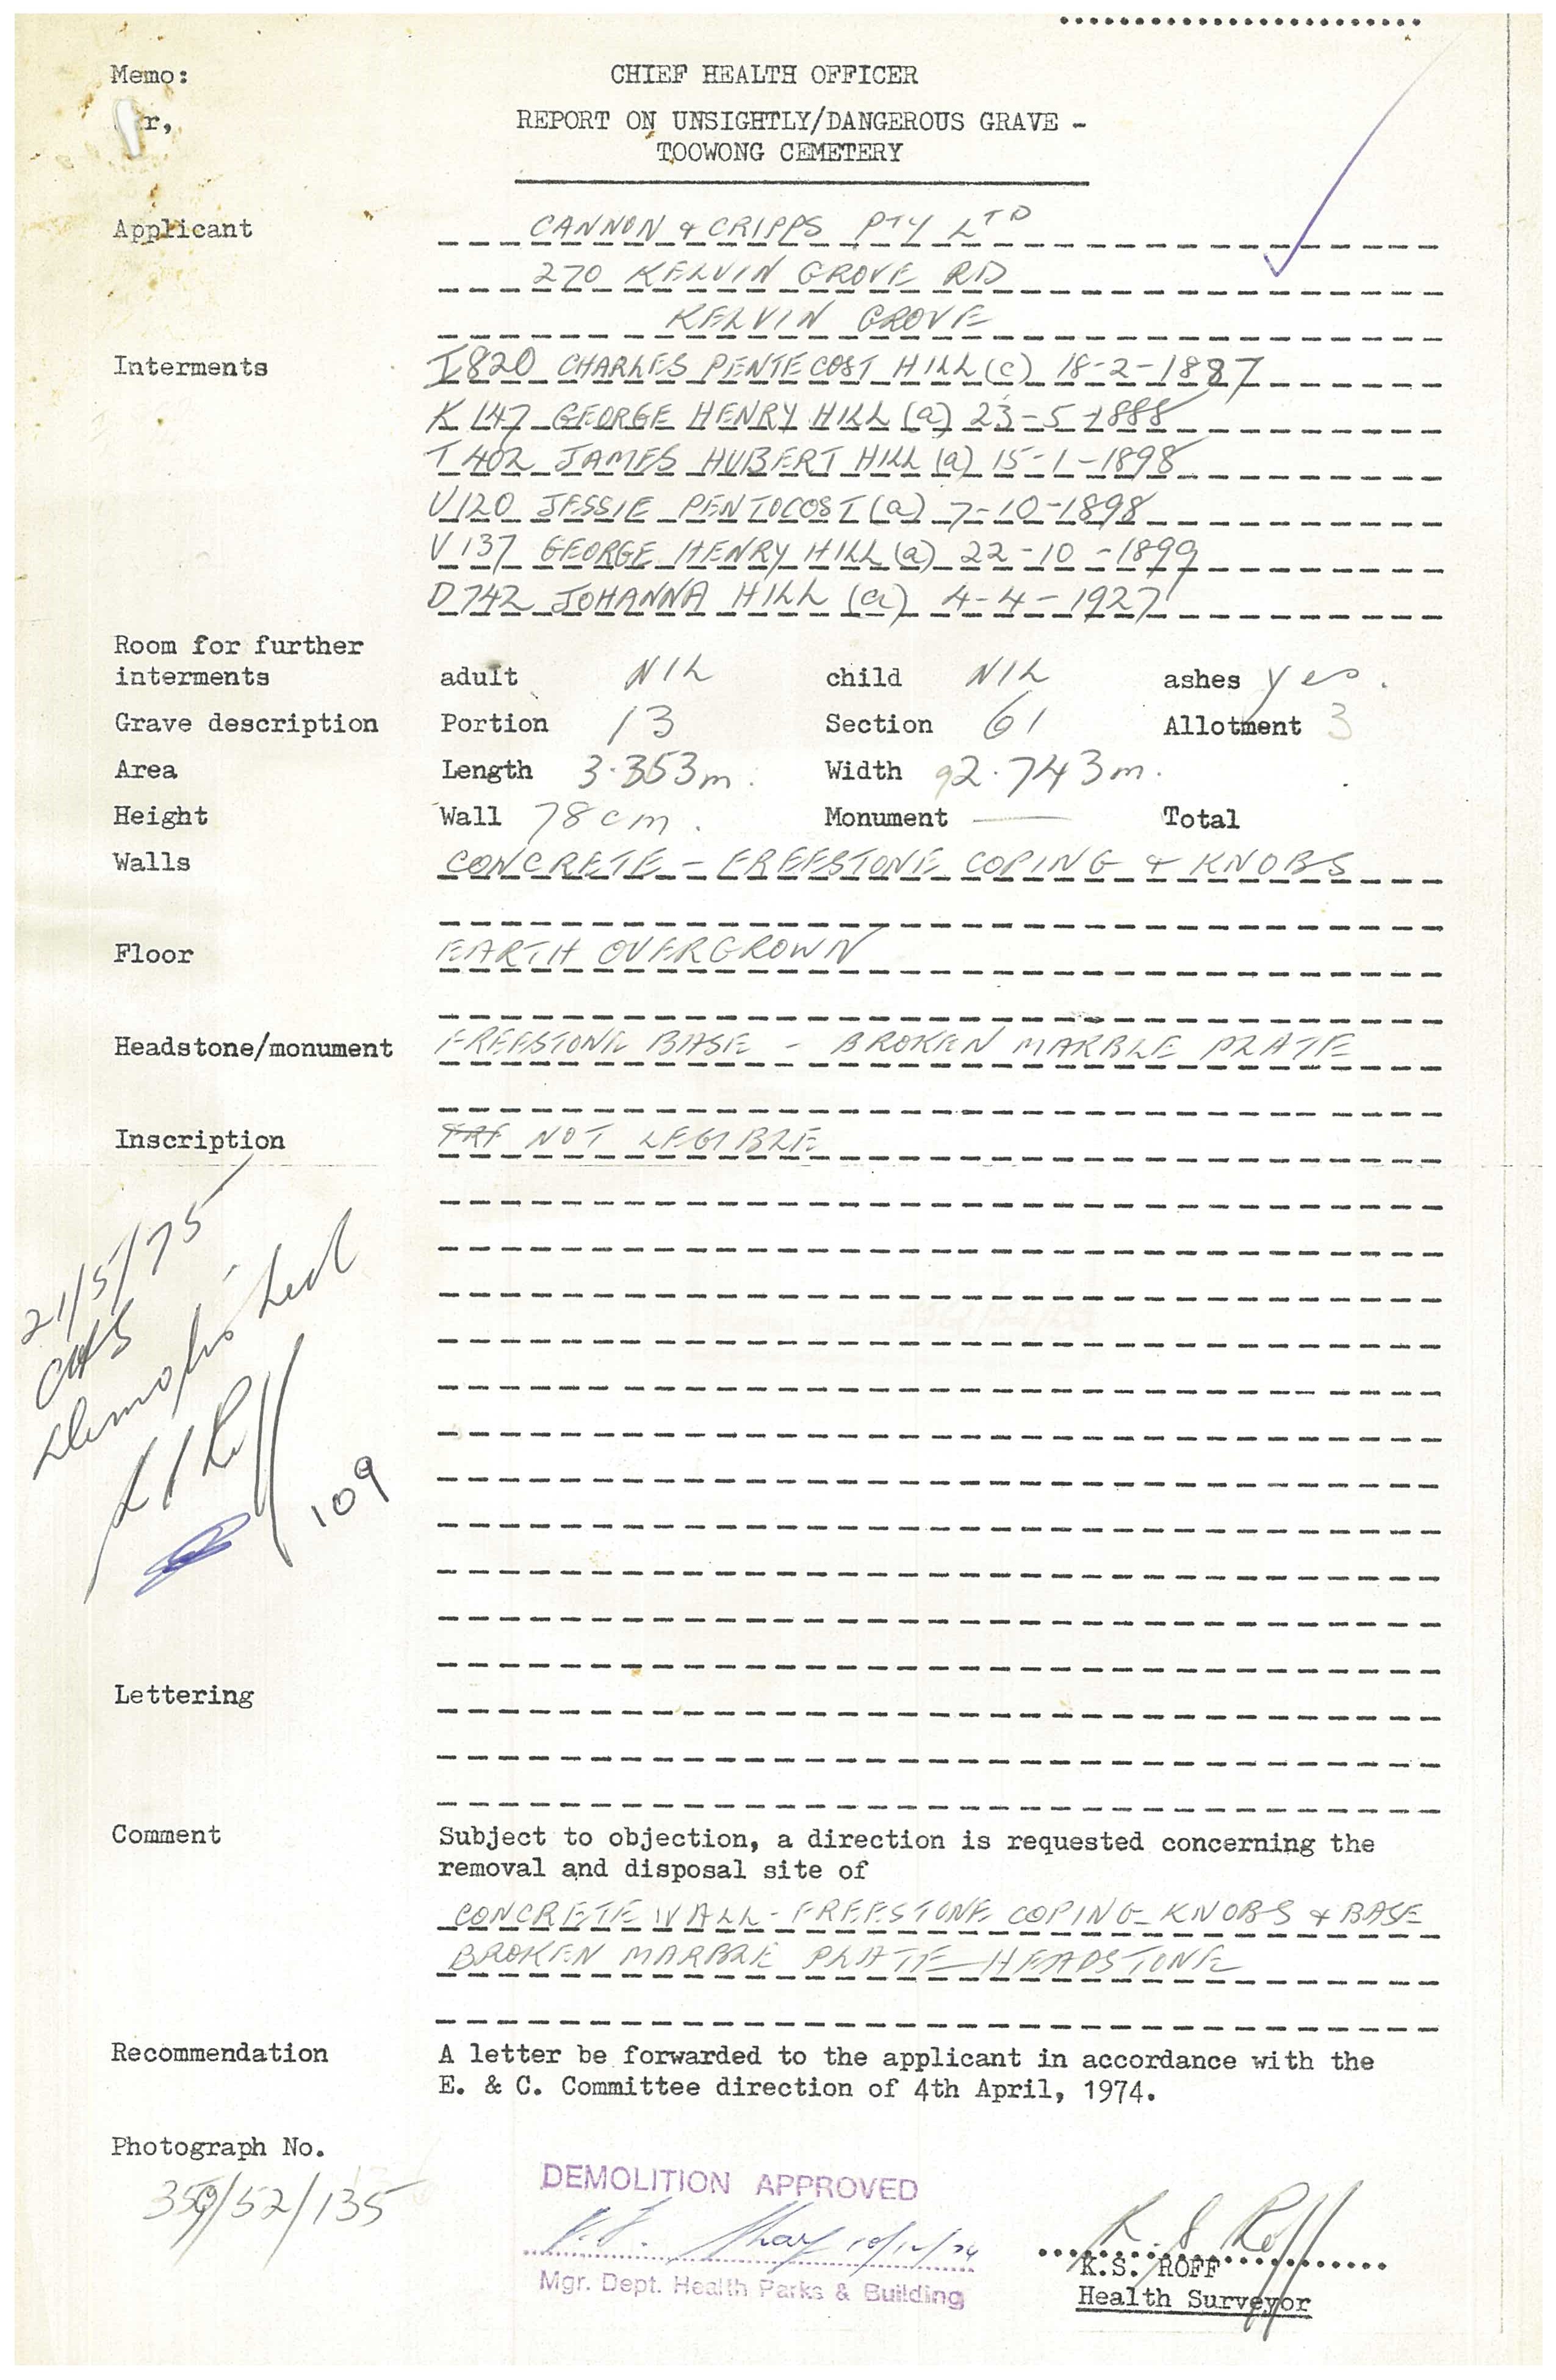 Memo:
CHIEF HEALTH OFFICER
r,
REPORT ON UNSIGHTLY/DANGEROUS GRAVE -
TOOWONG CEMETERY
Applicant CANNON & CRIPPS PTY LTD
270 KELVIN GROVE RD
KELVIN GROVE
Interments I820 CHARLES PENTECOST HILL (c) 18-2-1887
K 147 GEORGE HENRY HILL (a) 23-5-1888
T 402 JAMES HUBERT HILL (a) 15-1-1898
V120 JESSIE PENTOCOST (a) 7-10-1898
V 137 GEORGE HENRY HILL (a) 22-10-1899
D742 JOHANNA HILL (a) 4-4-1927
Room for further
interments adult NIL child NIL ashes yes.
Grave description Portion 13 Section 61 Allotment 3
Area Length 3.353m. Width 2.743m.
Height Wall 78cm. Monument — Total
Walls CONCRETE - FREESTONE COPING & KNOBS
Floor EARTH OVERGROWN
Headstone/monument FREESTONE BASE - BROKEN MARBLE PLATE
Inscription NOT LEGIBLE
21/5/75
CHS
Demolished
K S Roff
109
Lettering
Comment Subject to objection, a direction is requested concerning the
removal and disposal site of
CONCRETE WALL - FREESTONE COPING KNOBS & BASE
BROKEN MARBLE PLATE HEADSTONE
Recommendation A letter be forwarded to the applicant in accordance with the
E. & C. Committee direction of 4th April, 1974.
Photograph No.
/52/135
DEMOLITION APPROVED
10/12/74
Mgr. Dept. Health Parks & Building
K. S Roff
K.S. ROFF
Health Surveyor